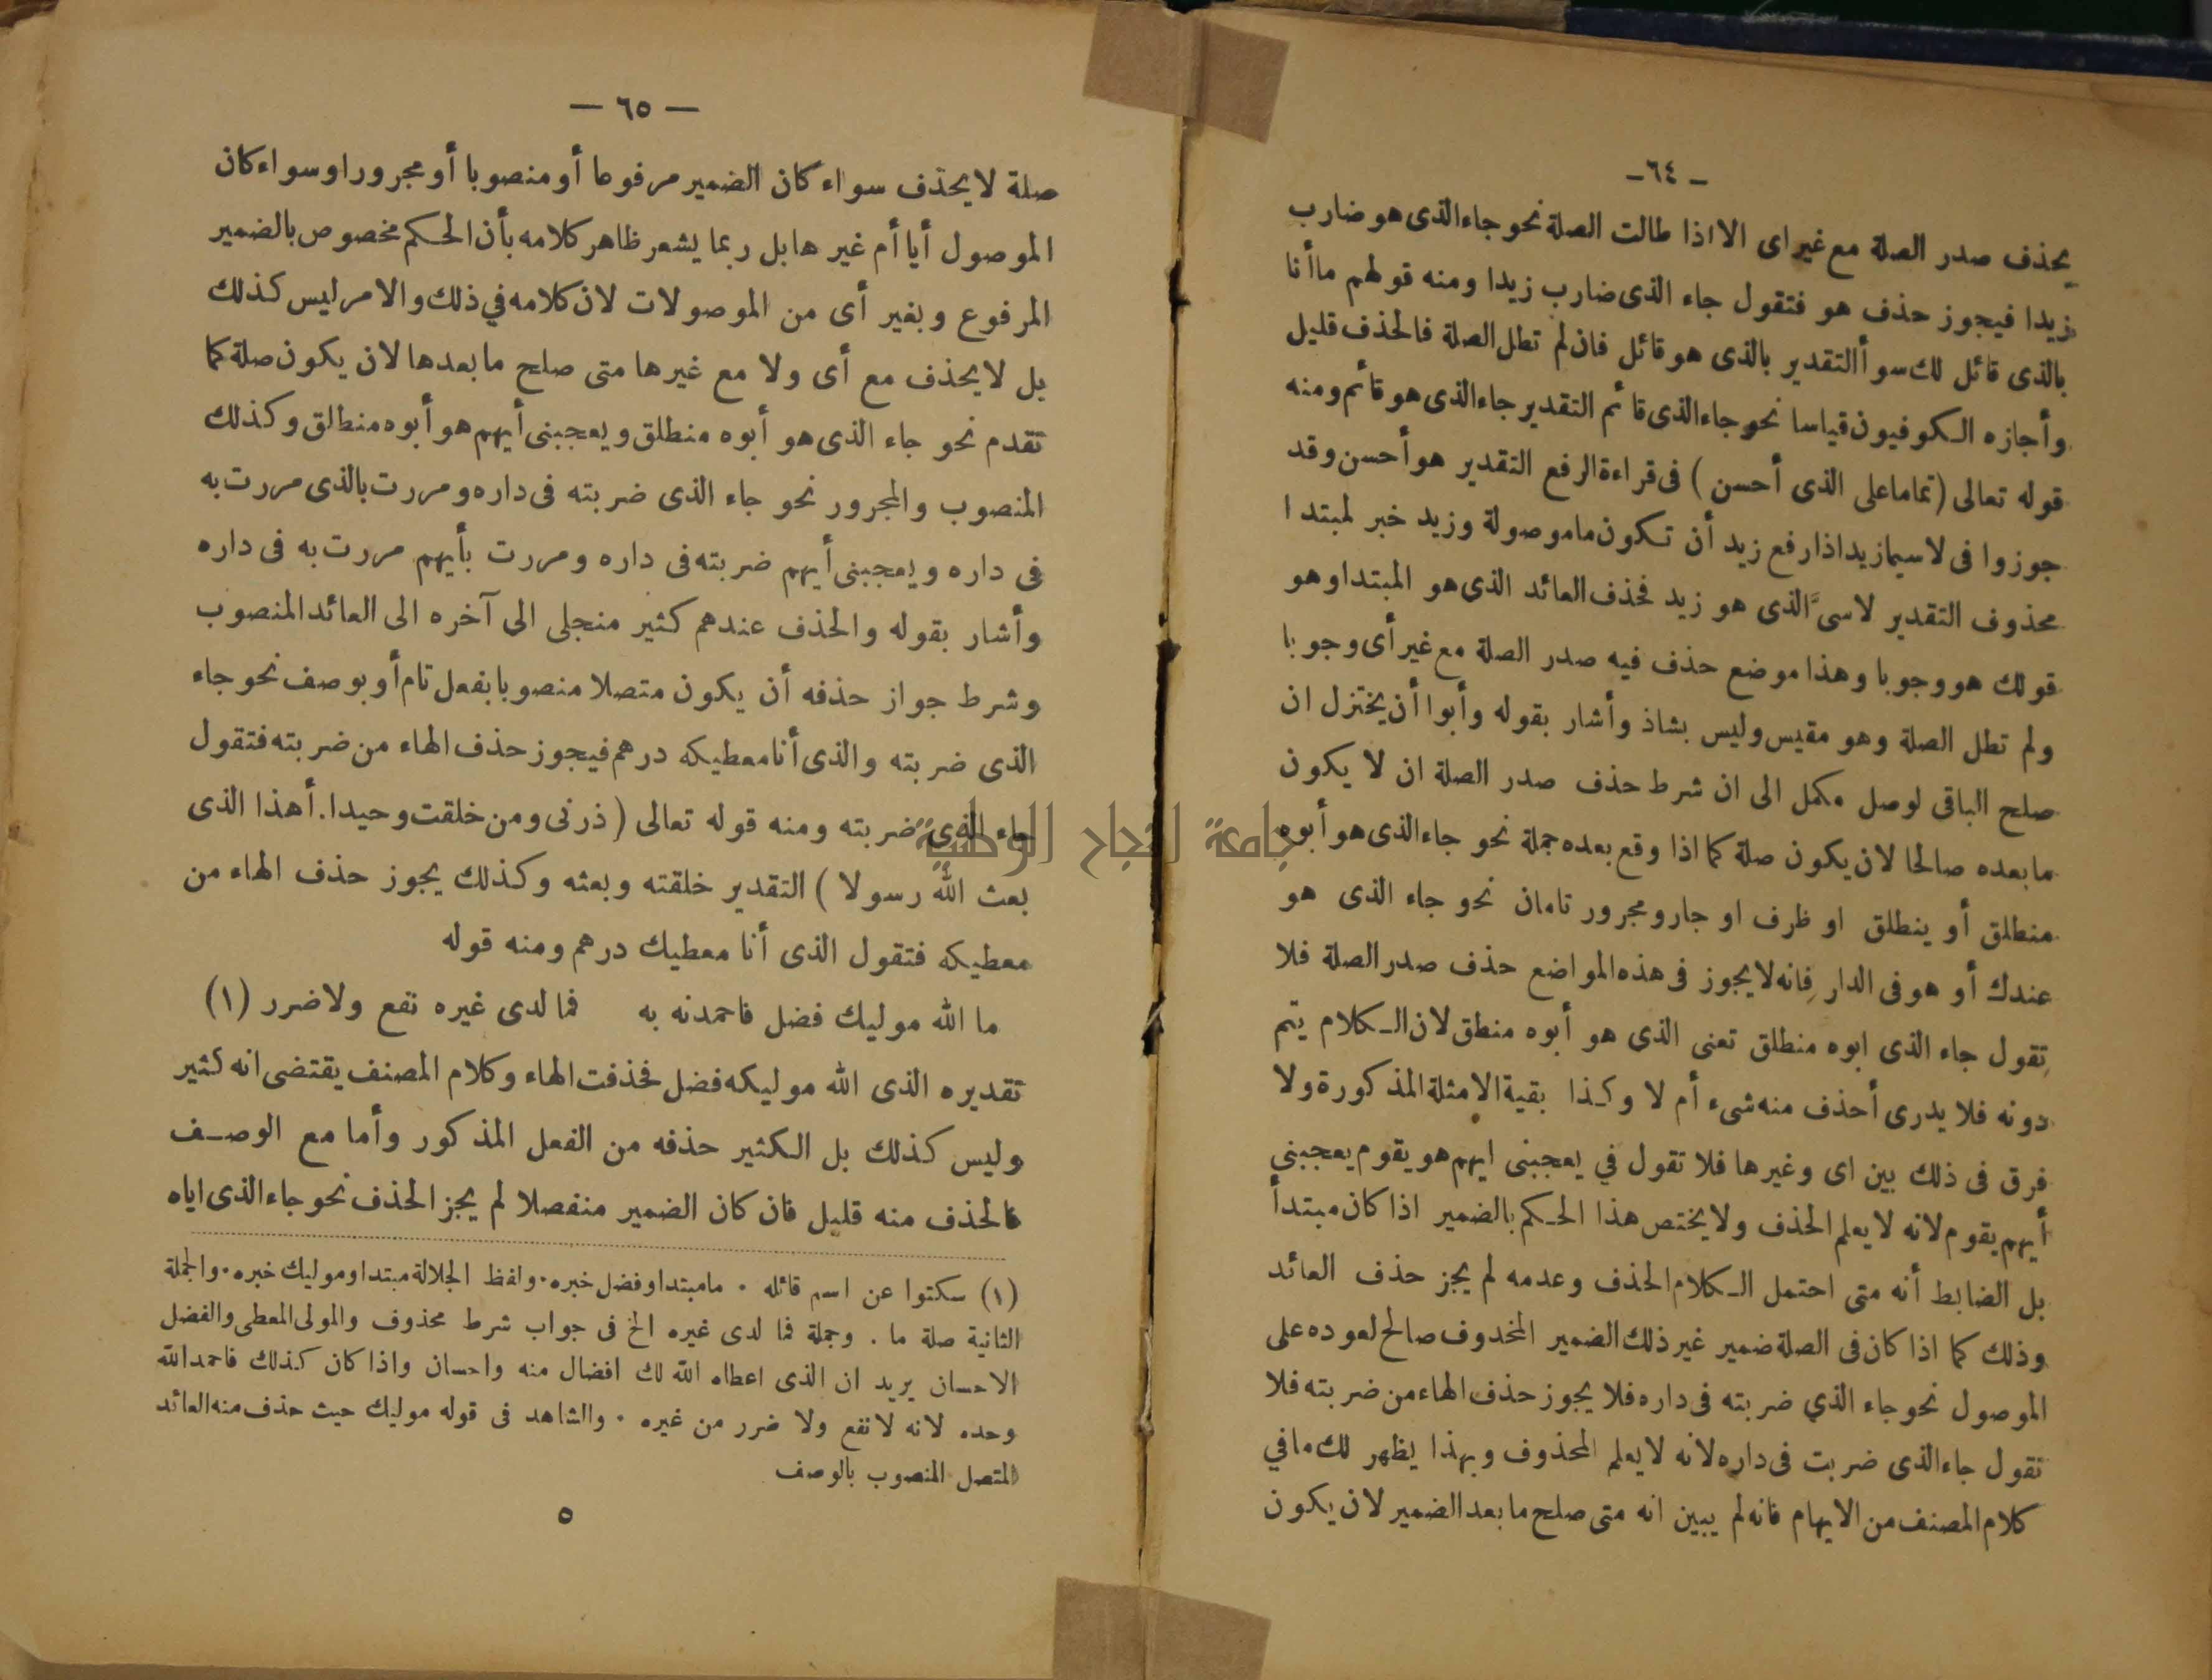 ـ ٦٤ ـ
يحذف صدر الصلة مع غير اى الا اذا طالت الصلة نحو جاء الذى هو ضارب
زيدا فيجوز حذف هو فتقول جاء الذى ضارب زيدا ومنه قولهم ما أنا
بالذى قائل لك سوأ التقدير بالذى هو قائل فان لم تطل الصلة فالحذف قليل
وأجازه الكوفيون قياسا نحو جاء الذى قائم التقدير جاء الذى هو قائم ومنه
قوله تعالى (تماما على الذى أحسن) فى قراءة الرفع التقدير هو أحسن وقد
جوزوا فى لاسيما زيد اذا رفع زيد أن تكون ما موصولة وزيد خبر لمبتدا
محذوف التقدير لاسىَّ الذى هو زيد فحذف العائد الذى هو المبتدا وهو
قولك هو وجوبا وهذا موضع حذف فيه صدر الصلة مع غير أى وجوبا
ولم تطل الصلة وهو مقيس وليس بشاذ وأشار بقوله وأبوا أن يختزل ان
صلح الباقى لوصل مكمل الى ان شرط حذف صدر الصلة ان لا يكون
ما بعده صالحا لان يكون صلة كما اذا وقع بعده جملة نحو جاء الذى هو أبوه
منطلق أو ينطلق او ظرف او جار ومجرور تامان نحو جاء الذى هو
عندك أو هو فى الدار فانه لا يجوز فى هذه المواضع حذف صدر الصلة فلا
تقول جاء الذى ابوه منطلق تعنى الذى هو أبوه منطق لان الكلام يتم
دونه فلا يدرى أحذف منه شىء أم لا وكذا بقية الامثلة المذكورة ولا
فرق فى ذلك بين اى وغيرها فلا تقول في يعجبنى ايهم هو يقوم يعجبنى
أيهم يقوم لانه لا يعلم الحذف ولا يختص هذا الحكم بالضمير اذا كان مبتدأ
بل الضابط أنه متى احتمل الكلام الحذف وعدمه لم يجز حذف العائد
وذلك كما اذا كان فى الصلة ضمير غير ذلك الضمير المخدوف صالح لعوده على
الموصول نحو جاء الذي ضربته فى داره فلا يجوز حذف الهاء من ضربته فلا
تقول جاء الذى ضربت فى داره لانه لا يعلم المحذوف وبهذا يظهر لك ما في
كلام المصنف من الايهام فانه لم يبين انه متى صلح ما بعد الضمير لان يكون
— ٦٥ —
صلة لا يحذف سواء كان الضمير مرفوعا أو منصوبا أو مجرورا وسواء كان
الموصول أيا أم غيرها بل ربما يشعر ظاهر كلامه بأن الحكم مخصوص بالضمير
المرفوع وبغير أى من الموصولات لان كلامه في ذلك والامر ليس كذلك
بل لا يحذف مع أى ولا مع غيرها متى صلح ما بعدها لان يكون صلة كما
تقدم نحو جاء الذى هو أبوه منطلق ويعجبنى أيهم هو أبوه منطلق وكذلك
المنصوب والمجرور نحو جاء الذى ضربته فى داره ومررت بالذى مررت به
فى داره ويعجبنى أيهم ضربته فى داره ومررت بأيهم مررت به فى داره
وأشار بقوله والحذف عندهم كثير منجلى الى آخره الى العائد المنصوب
وشرط جواز حذفه أن يكون متصلا منصوبا بفعل تام أو بوصف نحو جاء
الذى ضربته والذى أنا معطيكه درهم فيجوز حذف الهاء من ضربته فتقول
جاء الذى ضربته ومنه قوله تعالى (ذرنى ومن خلقت وحيدا. أهذا الذى
بعث الله رسولا) التقدير خلقته وبعثه وكذلك يجوز حذف الهاء من
معطيكه فتقول الذى أنا معطيك درهم ومنه قوله
ما الله موليك فضل فاحمدنه به فما لدى غيره نفع ولا ضرر (١)
تقديره الذى الله موليكه فضل فحذفت الهاء وكلام المصنف يقتضى انه كثير
وليس كذلك بل الكثير حذفه من الفعل المذكور وأما مع الوصف
فالحذف منه قليل فان كان الضمير منفصلا لم يجز الحذف نحو جاء الذى اياه
(١) سكتوا عن اسم قائله . ما مبتدا وفضل خبره . ولفظ الجلالة مبتدا وموليك خبره . والجملة
الثانية صلة ما . وجملة فما لدى غيره الخ فى جواب شرط محذوف والمولى المعطى والفضل
الاحسان يريد ان الذى اعطاه الله لك افضال منه واحسان واذا كان كذلك فاحمد الله
وحده لانه لا نفع ولا ضرر من غيره . والشاهد فى قوله موليك حيث حذف منه العائد
المتصل المنصوب بالوصف
٥
جامعة النجاح الوطنية